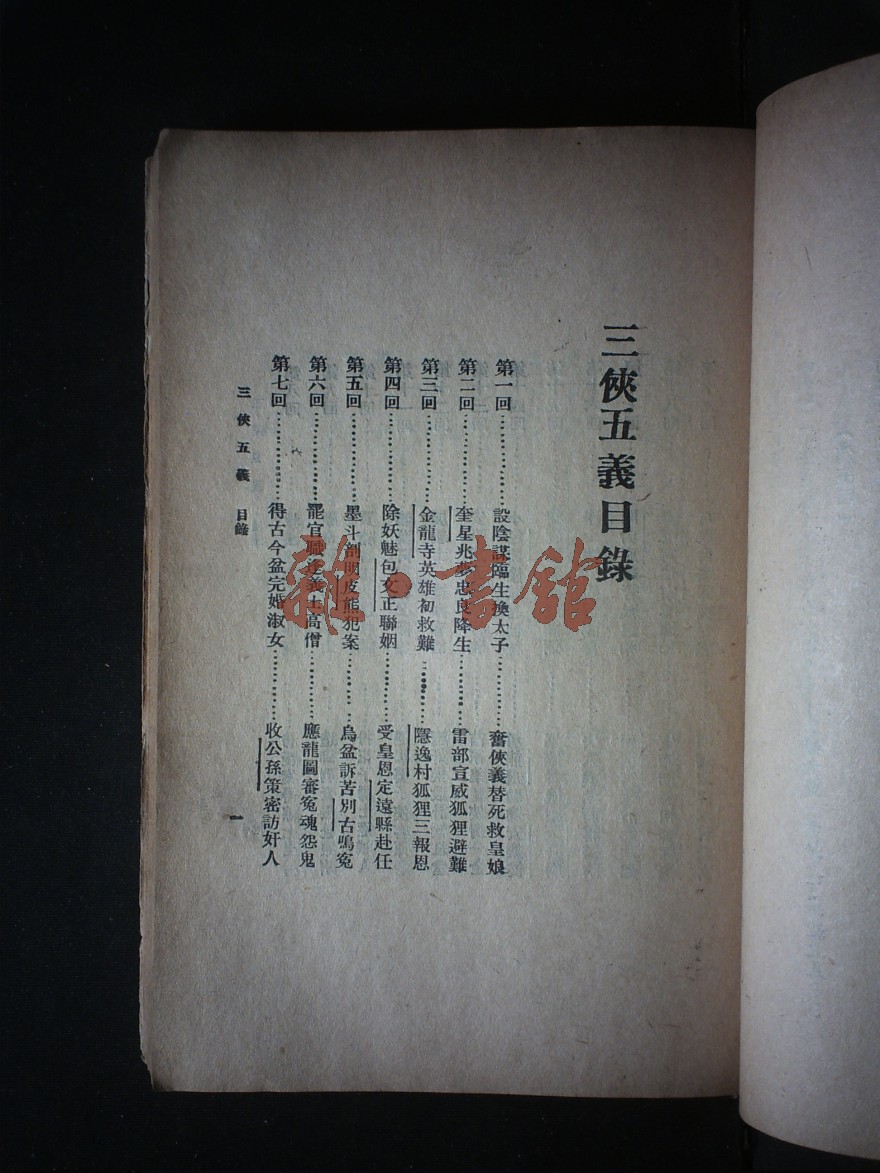 三俠五義目錄
第一回……………設陰謀臨生換太子……………奮俠義替死救皇娘
第二回……………奎星兆夢忠良降生……………雷部宣威狐狸避難
第三回……………金龍寺英雄初救難……………隱逸村狐狸三報恩
第四回……………除妖魅包文正聯姻……………受皇恩定遠縣赴任
第五回……………墨斗剖明皮熊犯案……………烏盆訴苦別古鳴冤
第六回……………罷官職逢義士高僧……………應龍圖審冤魂怨鬼
第七回……………得古今盆完婚淑女……………收公孫策密訪奸人
三俠五義 目錄
一
雜·書館